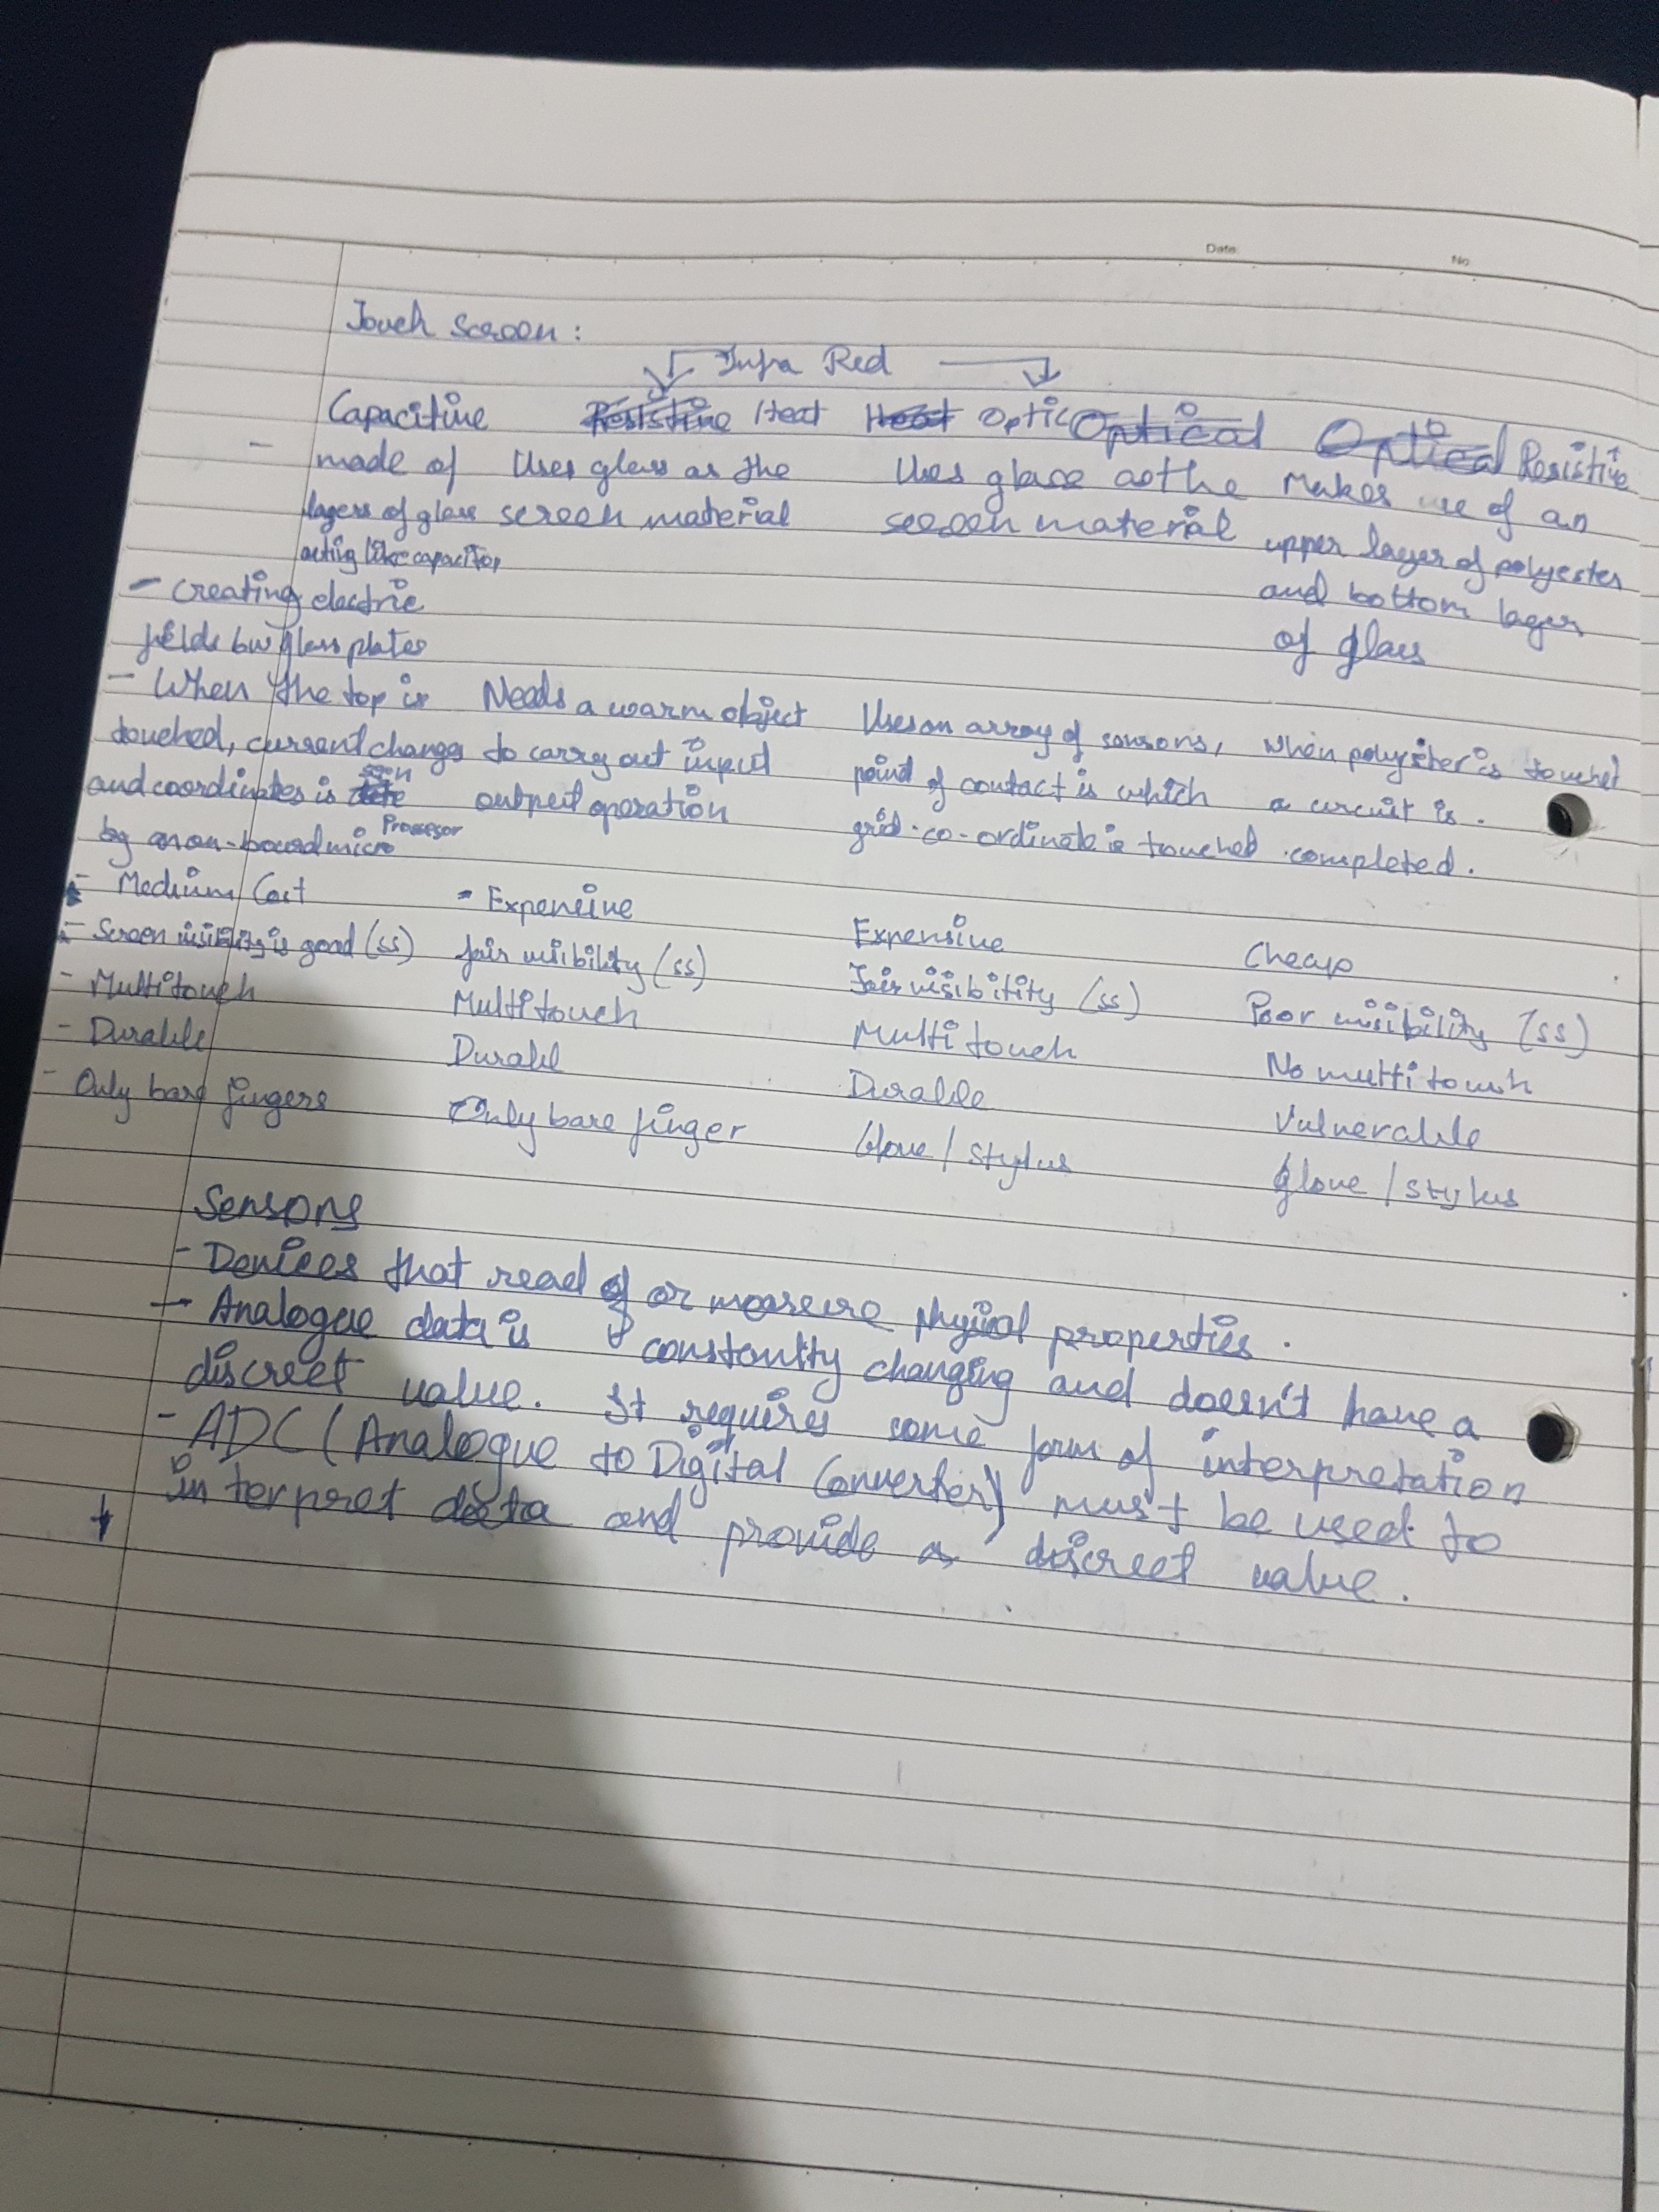 Date:
No.
Touch Screen:
Infra Red
Capacitive Resistive Heat Heat Optic Optical Optical Resistive
- made of Uses glass as the Uses glass as the Makes use of an
layers of glass screen material screen material upper layer of polyester
acting like capacitor and bottom layer
- creating electric of glass
fields bw glass plates
- When the top is Needs a warm object Uses an array of sensors, When polyester is touched
touched, current changes to carry out input point of contact is which a circuit is.
and coordinates is seen output operation grid co-ordinate is touched completed.
by an on-board micro Processor
- Medium Cost - Expensive Expensive Cheap
- Screen visibility is good (ss) fair visibility (ss) Fair visibility (ss) Poor visibility (ss)
- Multitouch Multitouch Multi touch No multi touch
- Durable Durabl Durable Vulnerable
- Only bare fingers Only bare finger Glove / stylus Glove / stylus
Sensors
- Devices that read of or measure physical properties.
- Analogue data is constantly changing and doesn't have a
discreet value. It requires some form of interpretation
- ADC (Analogue to Digital Converter) must be used to
interpret data and provide a discreet value.